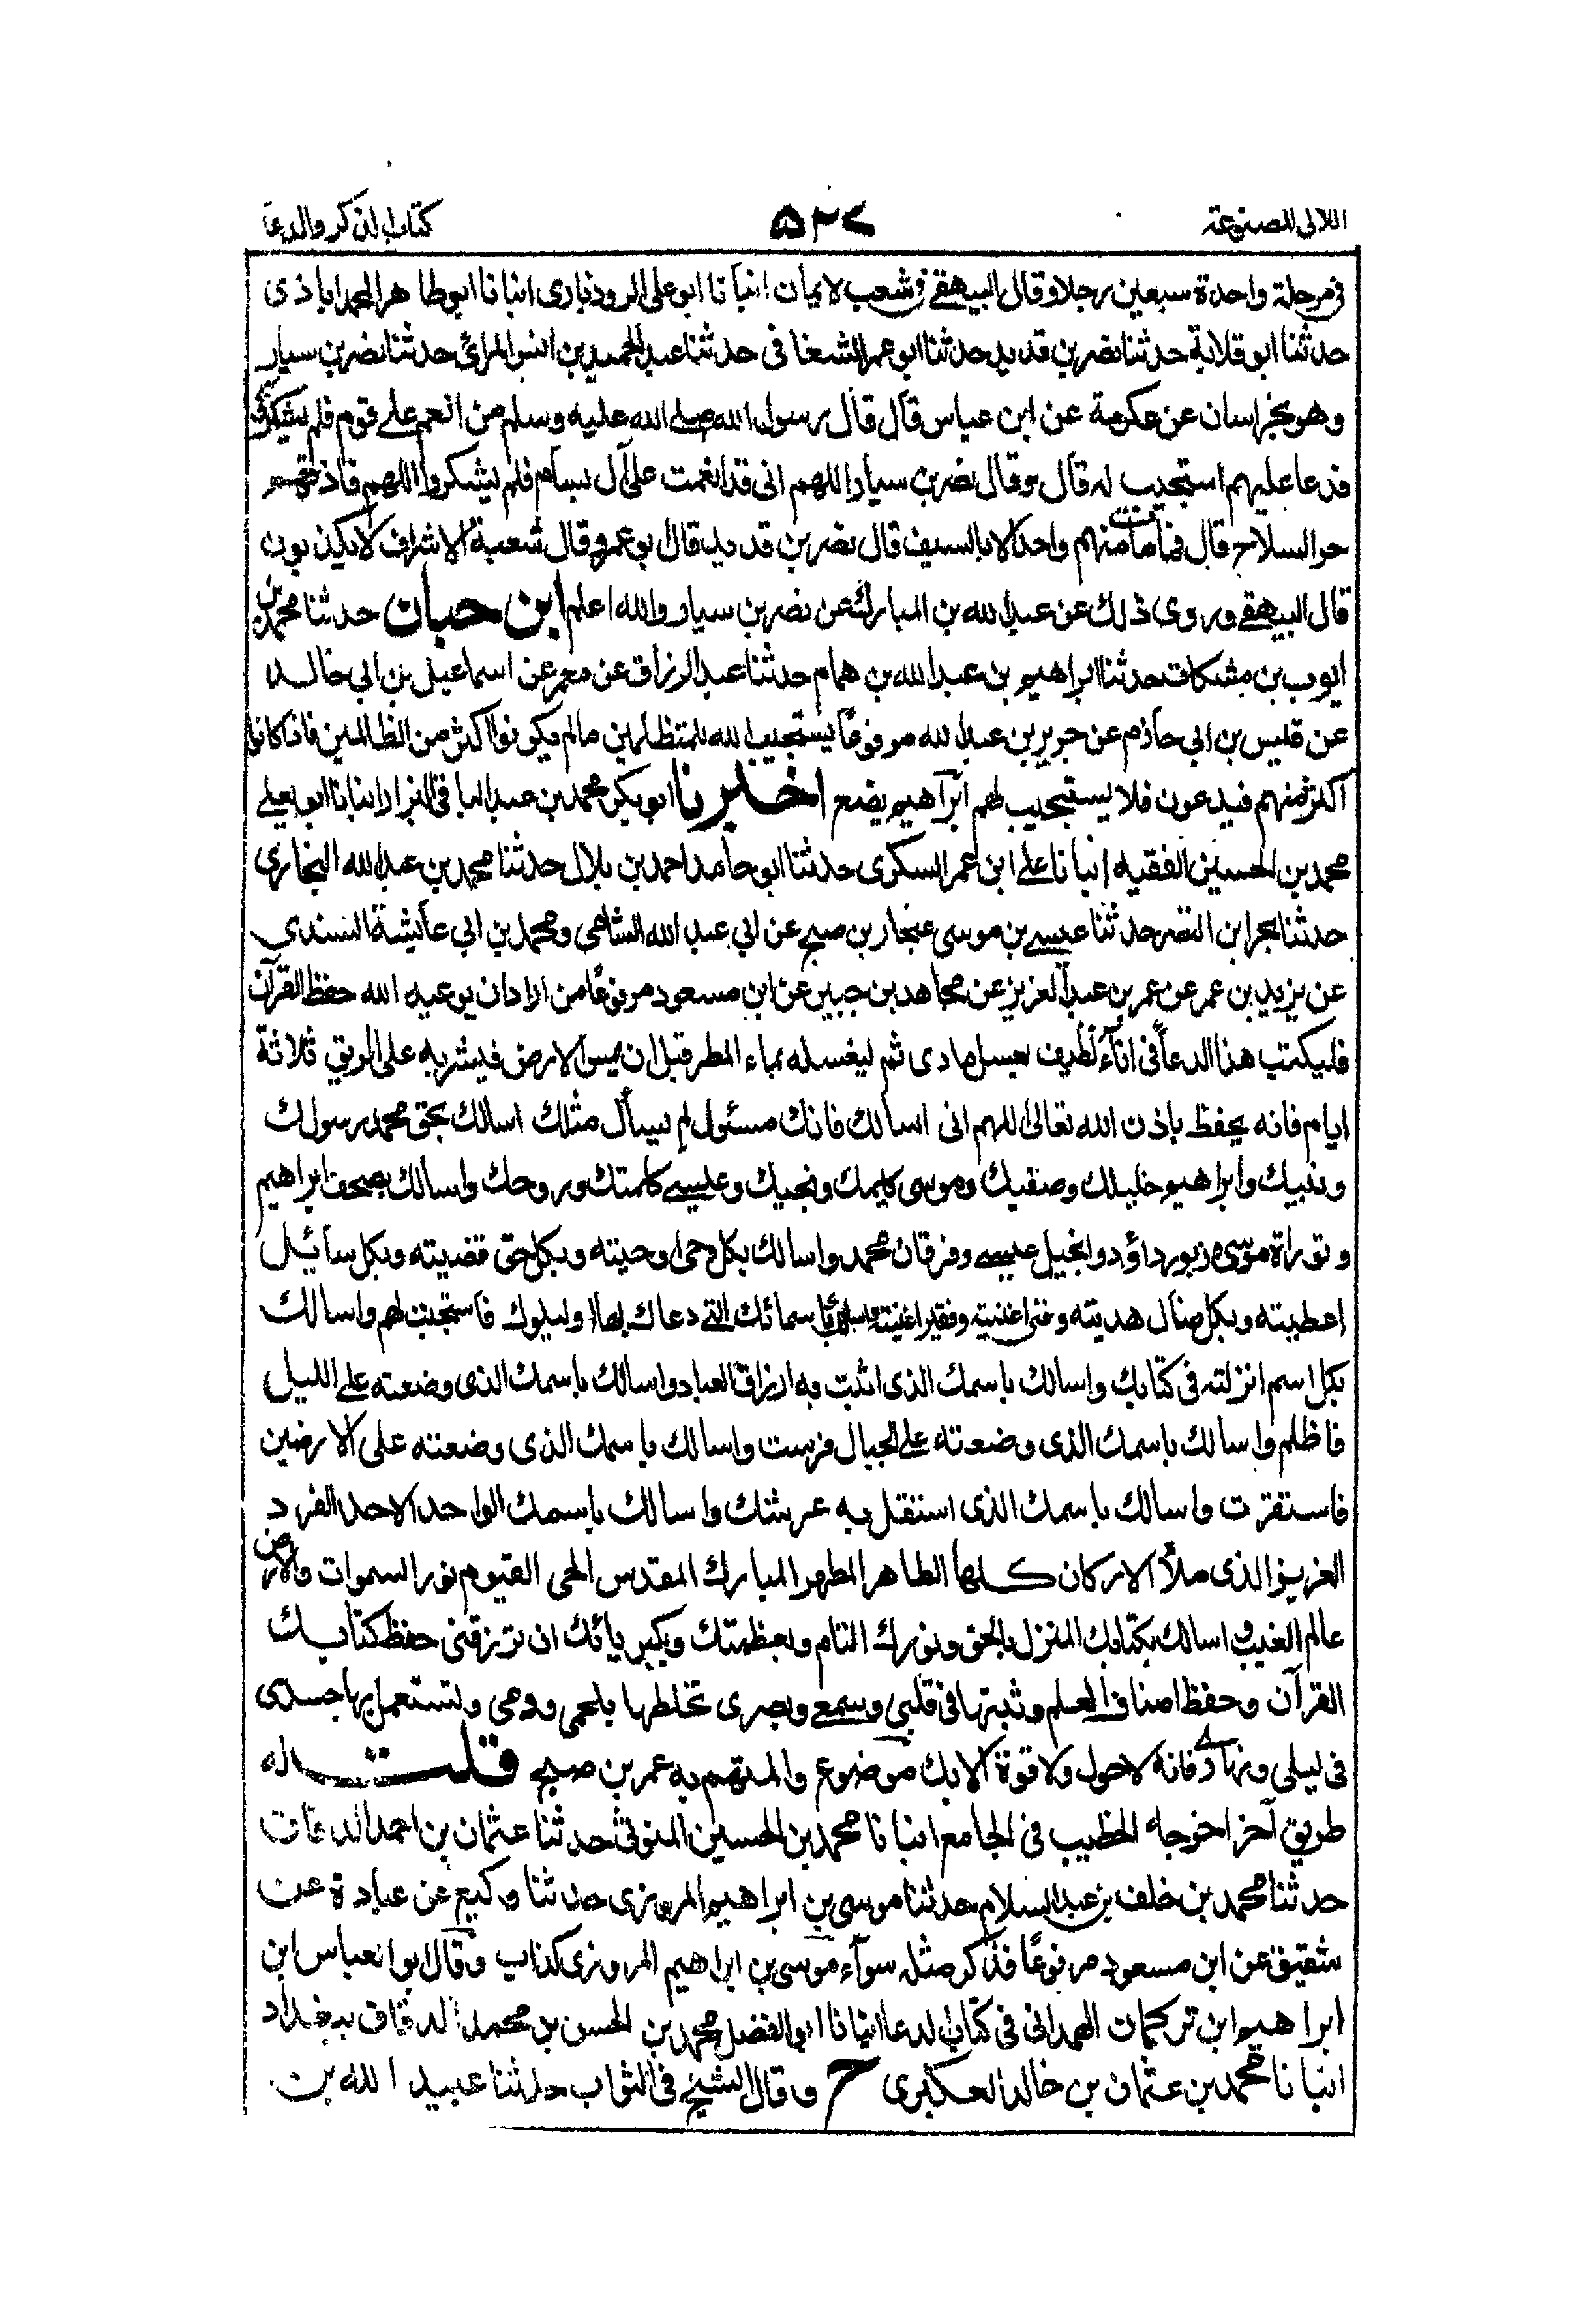 اللآلى المصنوعة ٥٢٧ كتاب الذكر والدعا
فى مرحلة واحدة سبعين رجلا وقال البيهقے فى شعب لايمان انبأنا ابو على الروذبارى انبانا ابو طاهر المحمدابا ذى
حدثنا ابو قلابة حدثنا نصر بن قديد حدثنا ابو عمر الشغافى حدثنا عبد الحميد بن انس المرائى حدثنا نصر بن سيار
وهو بخراسان عن عكرمة عن ابن عباس قال قال رسول الله صلے الله عليه وسلم من انعم علے قوم فلم يشكروه
فدعا عليهم استجيب له قال وقال نصر بن سيار اللهم انى قد انعمت على آل بسام فلم يشكروا اللهم فاذقهم
حر السلاح قال فما مات منهم واحد الا بالسيف قال نصر بن قديد قال ابو عمرو قال شعبة الاشراف لا يكذبون
قال البيهقے وروى ذلك عن عبد الله بن المبارك عن نصر بن سيار والله اعلم ابن حبان حدثنا محمد بن
ايوب بن مشكان حدثنا ابراهيم بن عبد الله بن همام حدثنا عبد الرزاق عن معمر عن اسماعيل بن ابى خالد
عن قليس بن ابى حازم عن جرير بن عبد لله مرفوعًا يستجيب الله للمتظلمين مالم يكونوا اكثر من الظالمين فاذا كانوا
اكثر منهم فيدعون فلا يستجيب لهم ابراهيم يضع اخبرنا ابو بكر محمد بن عبد الباقى البزار انبانا ابو يعلے
محمد بن الحسين الفقيه انبانا علے ابن عمر السكرى حدثنا ابو حامد احمد بن بلال حدثنا محمد بن عبد الله البخارى
حدثنا بحر ابن النضر حدثنا عيسے بن موسى غنجار بن صبح عن ابى عبد الله الشامى ومحمد بن ابى عائشة السندي
عن يزيد بن عمر عن عمر بن عبد العزيز عن مجاهد بن جبير عن ابن مسعود مرفوعًا من اراد ان يوعيه الله حفظ القرآن
فليكتب هذا الدعآ فى اناء نظيف بعسل ماذى ثم ليغسله بماء المطر قبل ان يمس الارض فيشربه على الريق ثلاثة
ايام فانه يحفظ باذن الله تعالى اللهم انى اسالك فانك مسئول لم يسأل مثلك اسالك بحق محمد رسولك
ونبيك وابراهيم خليلك وصفيك وموسى كليمك ونجيك وعيسے كلمتك وروحك واسالك بصحف ابراهيم
وتوراة موسى وزبور داؤد وانجيل عيسے وفرقان محمد واسالك بكل وحى اوحيته وبكل حق قضيته وبكل سائل
اعطيته وبكل ضال هديته وغنى اغنيته وفقير اغنيته واسالك باسمائك التے دعاك بها اولياؤك فاستجبت لهم واسالك
بكل اسم انزلته فى كتابك واسالك باسمك الذى اثبت به ارزاق العباد واسالك باسمك الذى وضعته علے الليل
فاظلم واسالك باسمك الذى وضعته علے الجبال فرست واسالك باسمك الذى وضعته على الارضين
فاستقرت واسالك باسمك الذى استقل به عرشك واسالك باسمك الواحد الاحد الفرد
العزيز الذى ملأ الاركان كلها الطاهر المطهر المبارك المقدس الحى القيوم نور السموات والارض
عالم الغيب و اسالك بكتابك المنزل بالحق ونورك التام وبعظمتك وبكبريائك ان ترزقنى حفظ كتابك
القرآن وحفظ اصناف العلم وثبتها فى قلبى وسمعے وبصرى تخلطها بلحمى ودمى وتستعمل بها جسدى
فى ليلى ونهارى فانه لاحول ولا قوة الا بك موضوع والمتهم به عمر بن صبح قلت له
طريق آخر اخرجه الخطيب فى الجامع انبانا محمد بن الحسين المتوثى حدثنا عثمان بن احمد الدقاق
حدثنا محمد بن خلف بن عبد السلام حدثنا موسى بن ابراهيم المروزى حدثنا وكيع عن عبادة عن
شقيق عن ابن مسعود مرفوعًا فذكر مثله سوآء موسى بن ابراهيم المروزى كذاب وقال ابو العباس ابن
ابراهيم ابن تركمان الهمدانى فى كتاب الدعا انبانا ابو الفضل محمد بن الحسن بن محمد الدقاق ببغداد
انبانا محمد بن عثمان بن خالد العكبرى ح وقال ابو الشيخ فى الثواب حدثنا عبيد الله بن